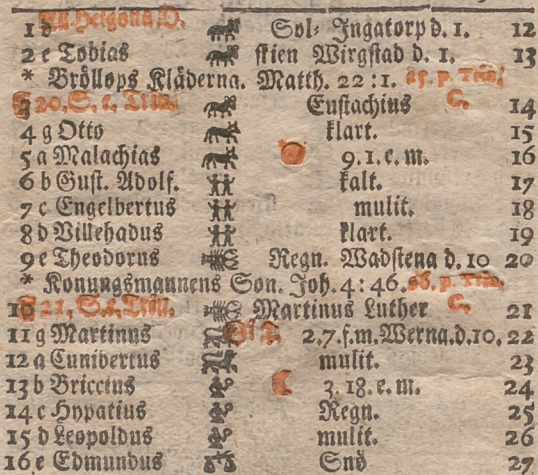 1 d Alla Helgona D. Sol- Ingatorp d. 1. 12
2 e Tobias sken Wirgstad d. 1. 13
* Bröllops Kläderna. Matth. 22:1. 25. p. Trin.
3 F 20. S. e. Trin. Eustachius C. 14
4 g Otto klart. 15
5 a Malachias 9. 1. e. m. 16
6 b Gust. Adolf. kalt. 17
7 c Engelbertus mulit. 18
8 d Villehadus klart. 19
9 e Theodorus Regn. Wadstena d. 10 20
* Konungsmannens Son. Joh. 4:46. 26. p. Trin.
10 F 21. S. e. Trin. Martinus Luther C. 21
11 g Martinus 2. 7. f. m. Werna. d. 10. 22
12 a Cunibertus mulit. 23
13 b Briccius 3. 18. e. m. 24
14 c Hypatius Regn. 25
15 d Leopoldus mulit. 26
16 e Edmundus Snö 27